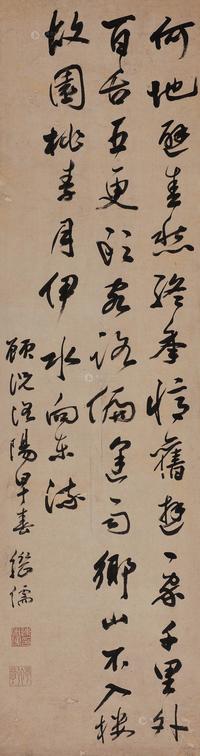 何地避春愁終年憶舊遊一家千里外
百舌五更頭客路偏逢雨鄉山不入樓
故園桃李月伊水向東流
顧況洛陽早春 繼儒